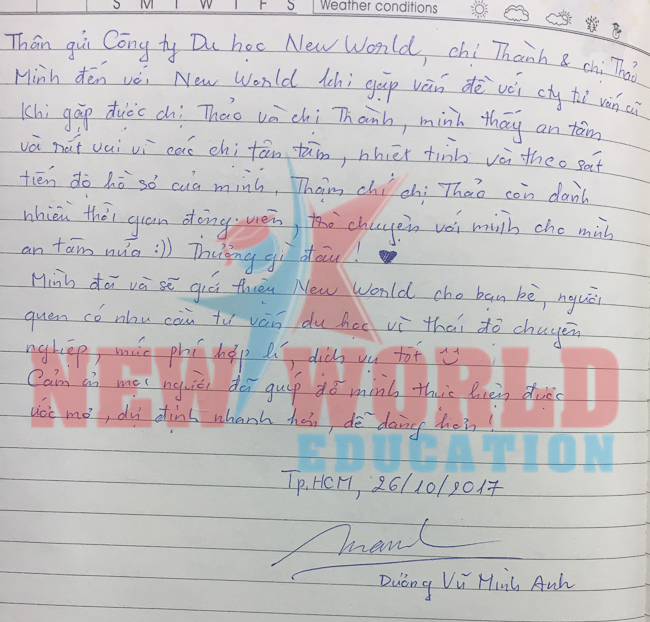 S M T W T F S Weather conditions
Thân gửi Công ty Du học New World, chị Thành & chị Thảo
Mình đến với New World khi gặp vấn đề với cty tư vấn cũ
Khi gặp được chị Thảo và chị Thành, mình thấy an tâm
và rất vui vì các chị tận tâm, nhiệt tình và theo sát
tiến độ hồ sơ của mình. Thậm chí chị Thảo còn dành
nhiều thời gian động viên, trò chuyện với mình cho mình
an tâm nữa :)) Thương gì đâu! ♥
Mình đã và sẽ giới thiệu New World cho bạn bè, người
quen có nhu cầu tư vấn du học vì thái độ chuyên
nghiệp, mức phí hợp lí, dịch vụ tốt
Cảm ơn mọi người đã giúp đỡ mình thực hiện được
ước mơ, dự định nhanh hơn, dễ dàng hơn!
NEW WORLD
EDUCATION
Tp.HCM, 26/10/2017
Dương Vũ Minh Anh